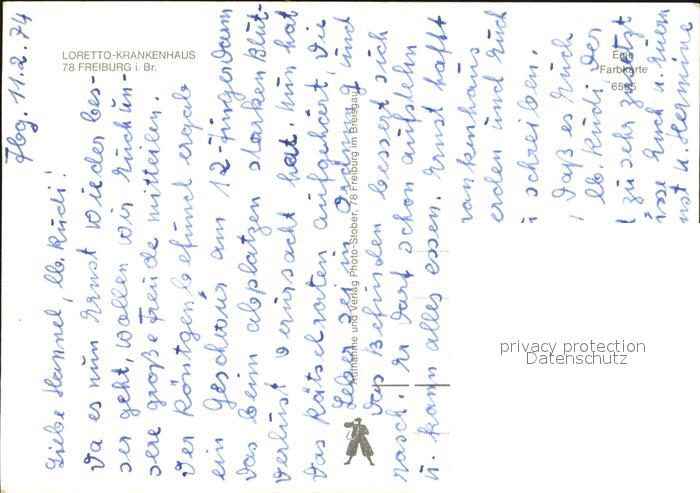 LORETTO-KRANKENHAUS
78 FREIBURG i. Br.
Eine
Farbkarte
6585
Aufnahme und Verlag Photo-Stober, 78 Freiburg im Breisgau
Fbg. 11.2.74
Liebe Hannel, lb. Rudi!
Da es nun Ernst wieder bes-
ser geht, wollen wir Euch un-
sere große Freude mitteilen.
Der Röntgenbefund ergab
ein Geschwür am 12-Fingerdarm
das beim abplatzen starken Blut-
verlust verursacht hat. Nun hat
das Rätselraten aufgehört, die
Leber sei in Ordnung, und
das Befinden bessert sich
rasch. Er darf schon aufstehn
u. kann alles essen. Ernst hofft
rankenhaus
erden und Euch
schreiben.
Daß es Euch
lb. Rudi der
zu sehr zusetzt
Euch u. Euern
nst u. Hermine
privacy protection
Datenschutz